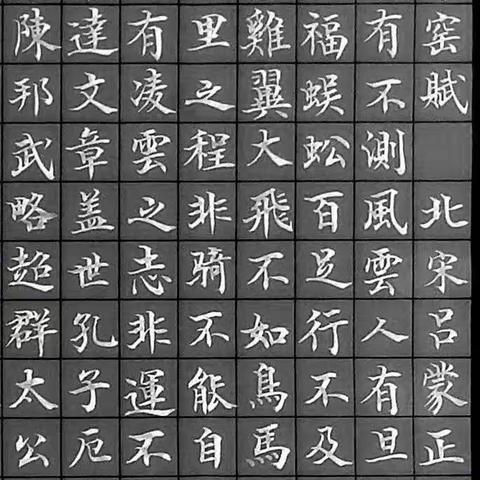 窑賦 北宋吕蒙正
有不測風雲人有旦
福蜈蚣百足行不及
雞翼大飛不如鳥馬
里之程非騎不能自
有凌雲之志非運不
達文章盖世孔子厄
陳邦武略超群太公